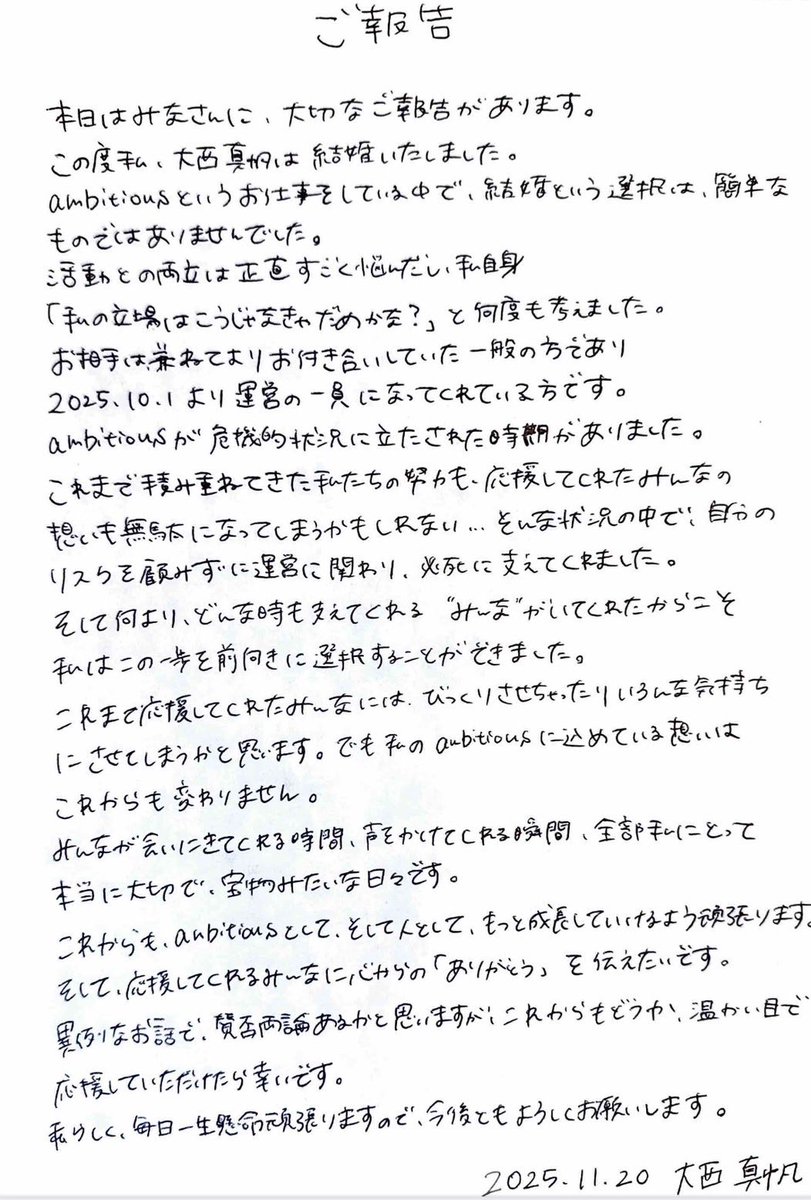 ご報告
本日はみなさんに、大切なご報告があります。
この度私、大西真帆は結婚いたしました。
ambitiousというお仕事をしている中で、結婚という選択は、簡単な
ものではありませんでした。
活動との両立は正直すごく悩んだし、私自身
「私の立場はこうじゃなきゃだめかな?」と何度も考えました。
お相手は、兼ねてよりお付き合いしていた一般の方であり
2025.10.1より運営の一員になってくれている方です。
ambitiousが危機的状況に立たされた時期がありました。
これまで積み重ねてきた私たちの努力も、応援してくれたみんなの
想いも無駄になってしまうかもしれない...そんな状況の中で、自分の
リスクを顧みずに運営に関わり、必死に支えてくれました。
そして何より、どんな時も支えてくれる"みんな"がいてくれたからこそ
私はこの一歩を前向きに選択することができました。
これまで応援してくれたみんなには、びっくりさせちゃったりいろんな気持ち
にさせてしまうかと思います。でも私のambitiousに込めている想いは
これからも変わりません。
みんなが会いにきてくれる時間、声をかけてくれる瞬間、全部私にとって
本当に大切で、宝物みたいな日々です。
これからも、ambitiousとして、そして人として、もっと成長していけるよう頑張ります。
そして、応援してくれるみんなに心からの「ありがとう」を伝えたいです。
異例なお話で、賛否両論あるかと思いますが、これからもどうか、温かい目で
応援していただけたら幸いです。
私らしく、毎日一生懸命頑張りますので、今後ともよろしくお願いします。
2025.11.20 大西 真帆